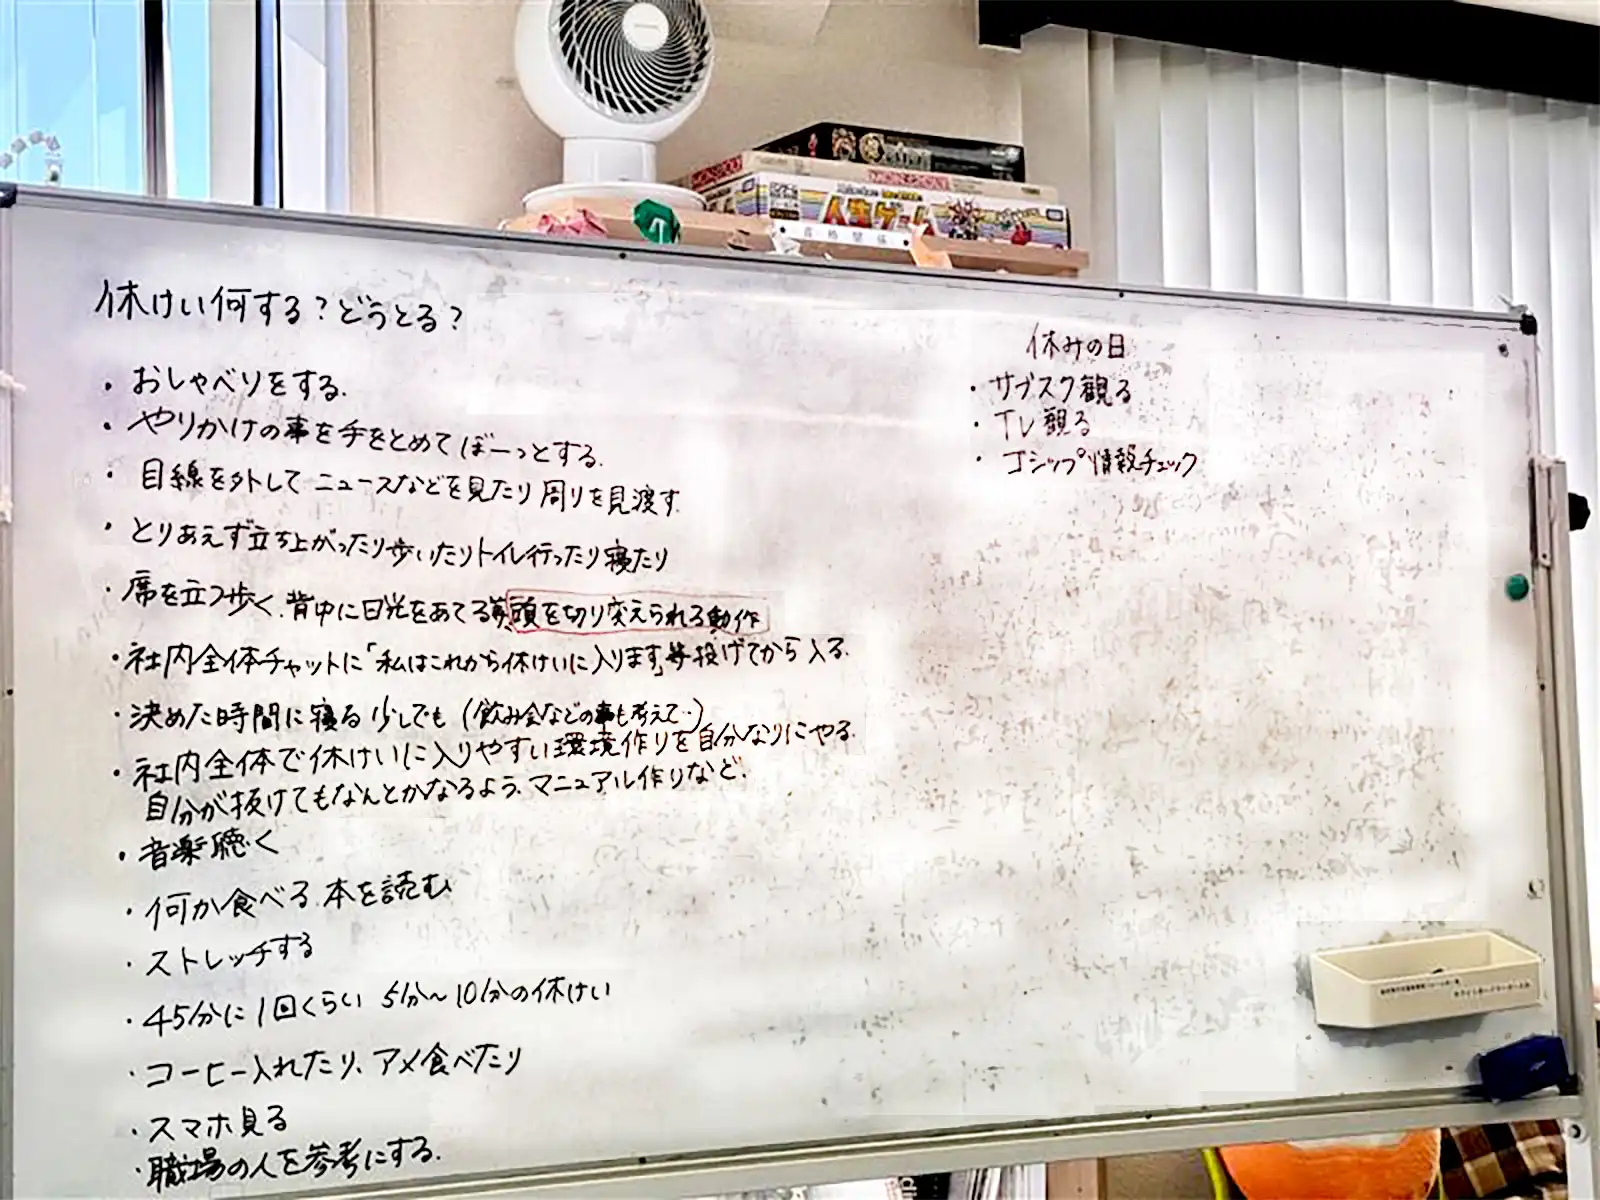 休けい何する?どうとる?
・おしゃべりをする.
・やりかけの事を手をとめてぼーっとする.
・目線を外してニュースなどを見たり周りを見渡す.
・とりあえず立ち上がったり歩いたりトイレ行ったり寝たり
・席を立つ歩く.背中に日光をあてる等、頭を切り変えられる動作
・社内全体チャットに「私はこれから休けいに入ります」等投げてから入る.
・決めた時間に寝る少しでも(飲み会などの事も考えて…)
・社内全体で休けいに入りやすい環境作りを自分なりにやる.
自分が抜けてもなんとかなるよう.マニュアル作りなど.
・音楽聴く
・何か食べる.本を読む
・ストレッチする
・45分に1回くらい 5分~10分の休けい
・コーヒー入れたり、アメ食べたり
・スマホ見る
・職場の人を参考にする.
休みの日
・サブスク観る
・TV観る
・ゴシップ情報チェック
MONOPOLY
人生ゲーム